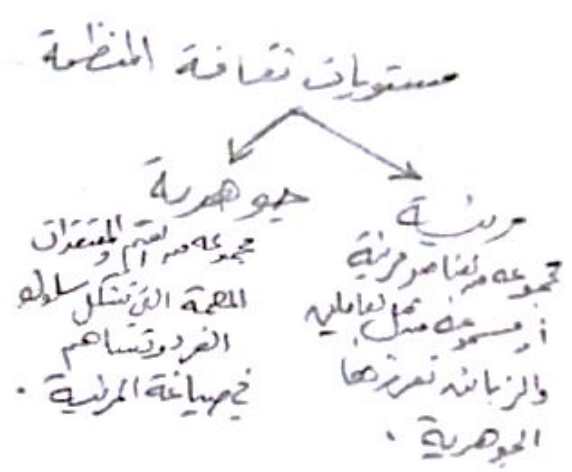 مستويات ثقافة المنظمة
مرئية
مجموعة من العناصر مرئية
أو مسموعة من قبل العاملين
والزبائن تعززها
الجوهرية .
جوهرية
مجموعة من القيم والمعتقدات
المهمة التي تشكل سلوك
الفرد وتساهم
في صياغة المرئية .